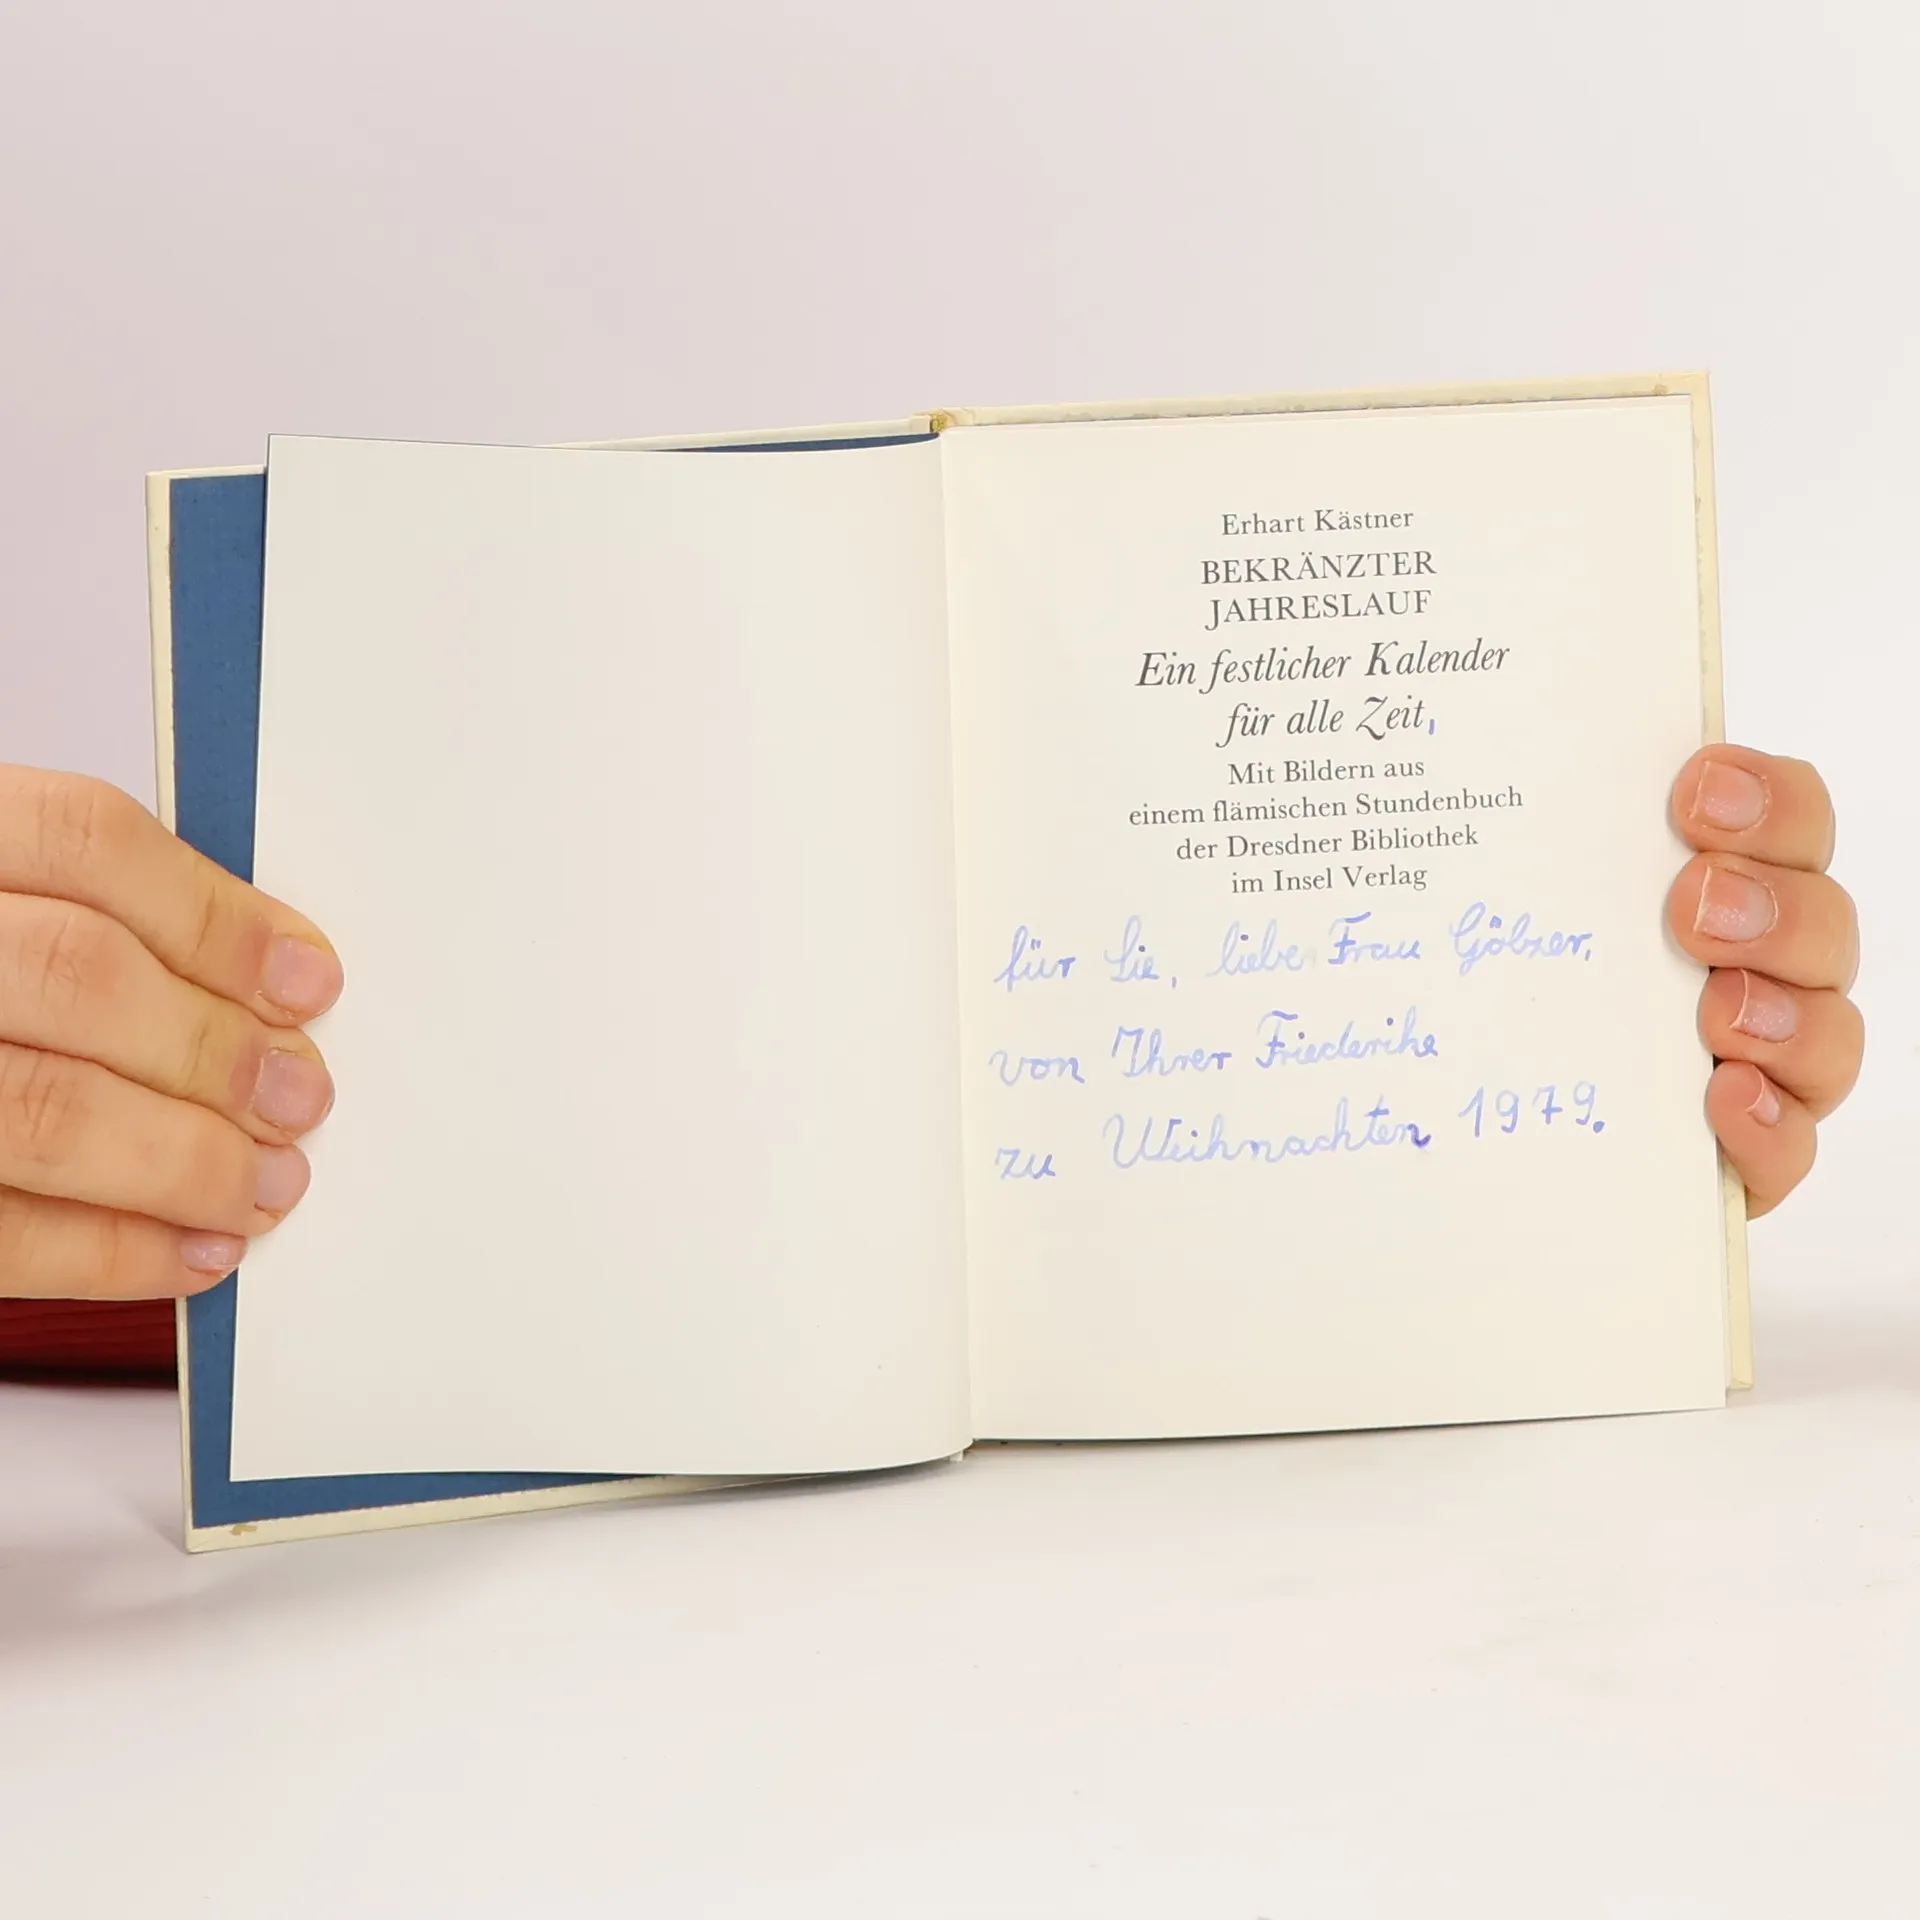 Erhart Kästner
BEKRÄNZTER
JAHRESLAUF
Ein festlicher Kalender
für alle Zeit,
Mit Bildern aus
einem flämischen Stundenbuch
der Dresdner Bibliothek
im Insel Verlag
für Sie, liebe Frau Gölzer,
von Ihrer Friederike
zu Weihnachten 1979.